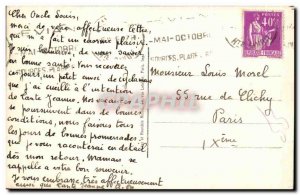 Cher Oncle Louis,
merci de votre affectueuse lettre,
qui m'a fait un énorme plaisir.
Je suis heureuse de vous savoir
en bonne santé. Vous recevez
un petit envoi de cyclamens
que j'ai cueilli à l'intention
de Tante Jeanne. Nos vacances
se poursuivent dans de bonnes
conditions, nous faisons tous
les jours de bonnes promenades
que je vous raconterai en détail
dès mon retour. Maman se
rappelle à votre souvenir.
Je vous embrasse très affectueusement
ainsi que tante Jeanne
MAI-OCTOBRE
POSTES
40c
Monsieur Louis Morel
55 rue de Clichy
Paris
IXème